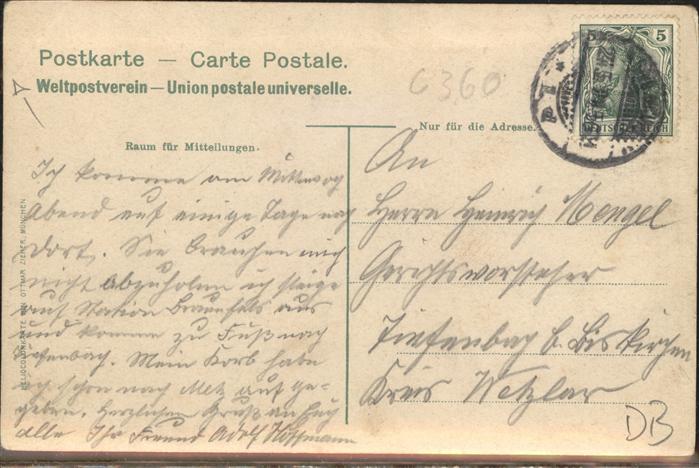 Postkarte — Carte Postale.
Weltpostverein — Union postale universelle.
C 3,60
5 5
DEUTSCHES REICH
Nur für die Adresse.
Raum für Mitteilungen.
Ich komme am Mittwoch
Abend auf einige Tage nach
dort. Sie brauchen mich
nicht abzuholen ich steige
auf Station Braunfels aus
und komme zu Fuß nach
Tiefenbach. Mein Korb habe
ich schon nach Metz aufge-
geben. Herzlichen Gruß an Euch
alle Ihr Freund Adolf Hoffmann
An
Herrn Heinrich Mengel
Gerichtsvorsteher
Tiefenbach b. Biskirchen
Kreis Wetzlar
DB
HELIOCOLORKARTE VON OTTMAR ZIEHER, MÜNCHEN